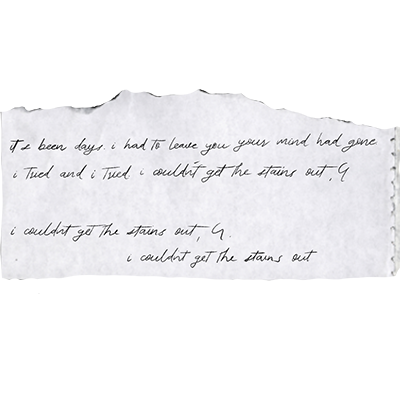 it's been days. i had to leave you your mind had gone
i tried and i tried i couldn't get the stains out, G
i couldn't get the stains out, G.
i couldn't get the stains out